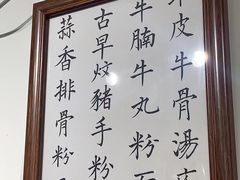 皮牛骨湯
牛腩牛丸粉
古早炆豬手粉
蒜香排骨粉